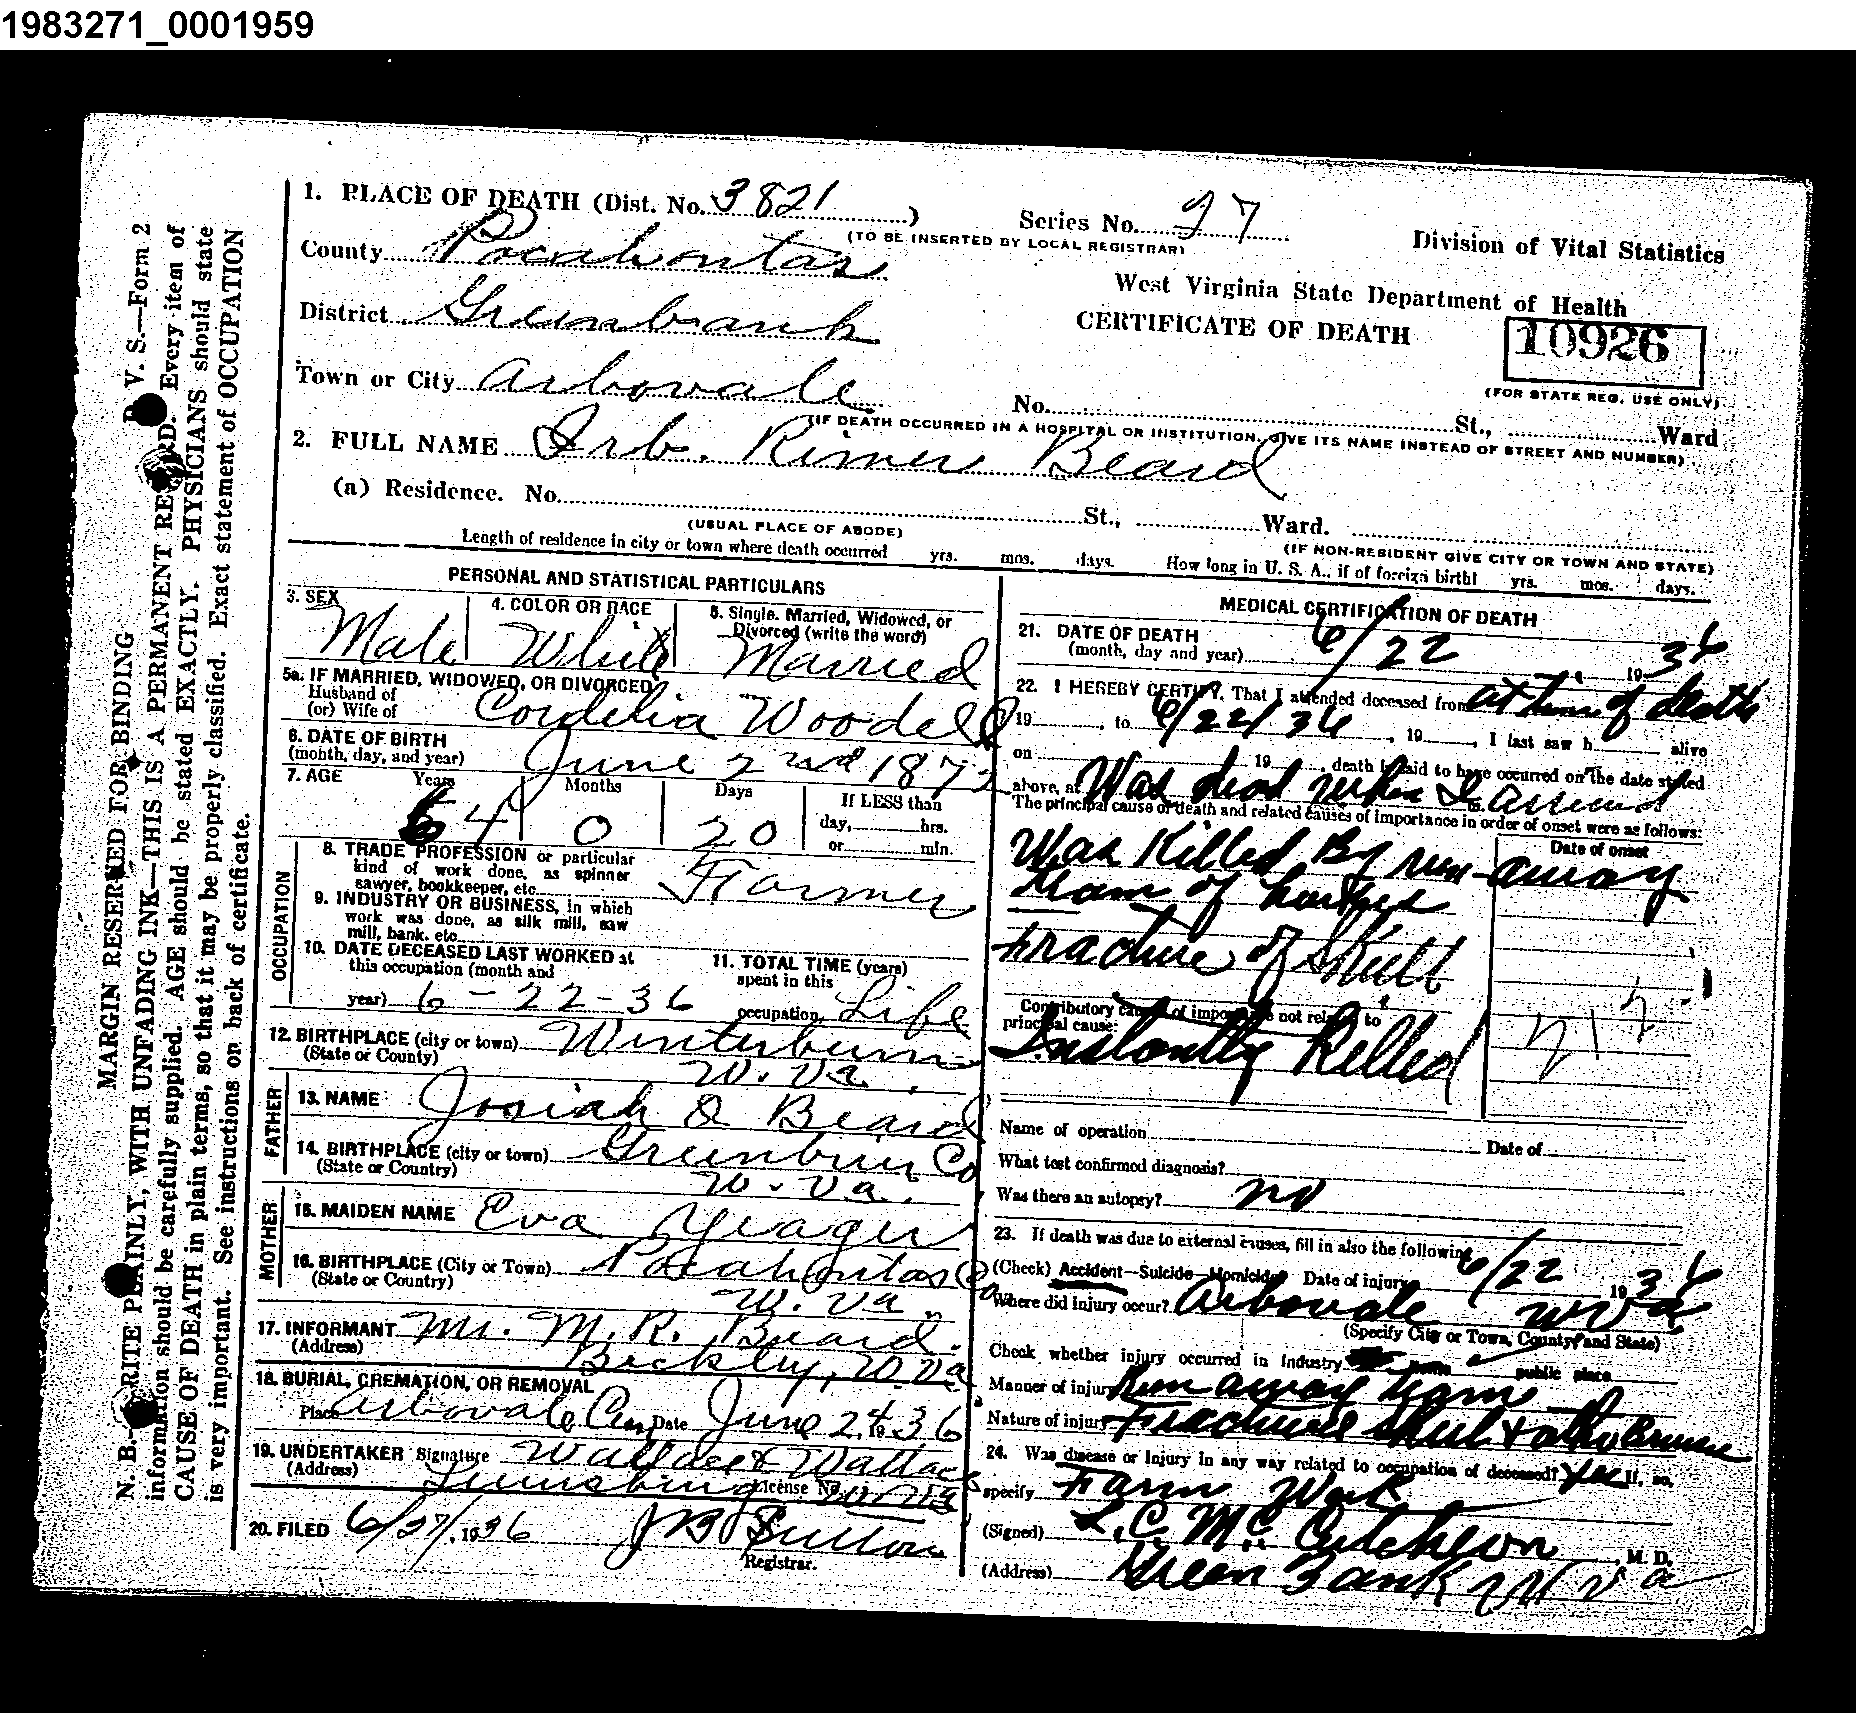 1983271_0001959
1. PLACE OF DEATH (Dist. No. 3821)
Series No. 27
(TO BE INSERTED BY LOCAL REGISTRAR)
Division of Vital Statistics
County Pocahontas
West Virginia State Department of Health
District Greenbank
CERTIFICATE OF DEATH
10926
(FOR STATE REG. USE ONLY)
Town or City Arbovale
No. St., Ward
(IF DEATH OCCURRED IN A HOSPITAL OR INSTITUTION, GIVE ITS NAME INSTEAD OF STREET AND NUMBER)
2. FULL NAME Irb. Rimer Beard
(a) Residence. No. St., Ward.
(USUAL PLACE OF ABODE)
(IF NON-RESIDENT GIVE CITY OR TOWN AND STATE)
Length of residence in city or town where death occurred yrs. mos. days. How long in U. S. A., if of foreign birth? yrs. mos. days.
PERSONAL AND STATISTICAL PARTICULARS
3. SEX
Male
4. COLOR OR RACE
White
5. Single, Married, Widowed, or
Divorced (write the word)
Married
5a. IF MARRIED, WIDOWED, OR DIVORCED
Husband of
(or) Wife of Cordelia Woodell
6. DATE OF BIRTH
(month, day, and year) June 2nd 1872
7. AGE Years Months Days If LESS than
day, hrs.
or min.
64 0 20
OCCUPATION
8. TRADE PROFESSION or particular
kind of work done, as spinner
sawyer, bookkeeper, etc. Farmer
9. INDUSTRY OR BUSINESS, in which
work was done, as silk mill, saw
mill, bank, etc.
10. DATE DECEASED LAST WORKED at
this occupation (month and
year) 6-22-36
11. TOTAL TIME (years)
spent in this
occupation Life
12. BIRTHPLACE (city or town) Winterburn
(State or County) W. Va.
FATHER
13. NAME Josiah O Beard
14. BIRTHPLACE (city or town) Greenbrier Co
(State or Country) W. Va.
MOTHER
15. MAIDEN NAME Eva Yeager
16. BIRTHPLACE (City or Town) Pocahontas Co
(State or Country) W. Va.
17. INFORMANT Mr. M. R. Beard.
(Address) Beckley, W. Va
18. BURIAL, CREMATION, OR REMOVAL
Place Arbovale Cem Date June 24 1936
19. UNDERTAKER Signature Wallace & Wallace
(Address) Lewisburg License No. W. Va
20. FILED 6/27/, 1936 J B Sutton
Registrar.
MEDICAL CERTIFICATION OF DEATH
21. DATE OF DEATH
(month, day and year) 6/22 1936
22. I HEREBY CERTIFY, That I attended deceased from at time of death
19, to 6/22/36, 19, I last saw h alive
on 19, death is said to have occurred on the date stated
above, at Was dead when I arrived
The principal cause of death and related causes of importance in order of onset were as follows:
Date of onset
Was Killed By run-away
team of horses
Fracture of Skull
Contributory causes of importance not related to
principal cause:
Instantly Killed
Name of operation Date of
What test confirmed diagnosis?
Was there an autopsy? no
23. If death was due to external causes, fill in also the following
(Check) Accident—Suicide—Homicide Date of injury 6/22 1936
Where did injury occur? Arbovale W Va
(Specify City or Town, County and State)
Check whether injury occurred in Industry home public place
Manner of injury Run away team
Nature of injury Fracture skull & other Bruises
24. Was disease or Injury in any way related to occupation of deceased? Yes If so,
specify Farm Work
(Signed) L. C. McCutcheon, M. D.
(Address) Green Bank W Va
MARGIN RESERVED FOR BINDING
V. S.—Form 2
N. B.—WRITE PLAINLY, WITH UNFADING INK—THIS IS A PERMANENT RECORD. Every item of
information should be carefully supplied. AGE should be stated EXACTLY. PHYSICIANS should state
CAUSE OF DEATH in plain terms, so that it may be properly classified. Exact statement of OCCUPATION
is very important. See instructions on back of certificate.